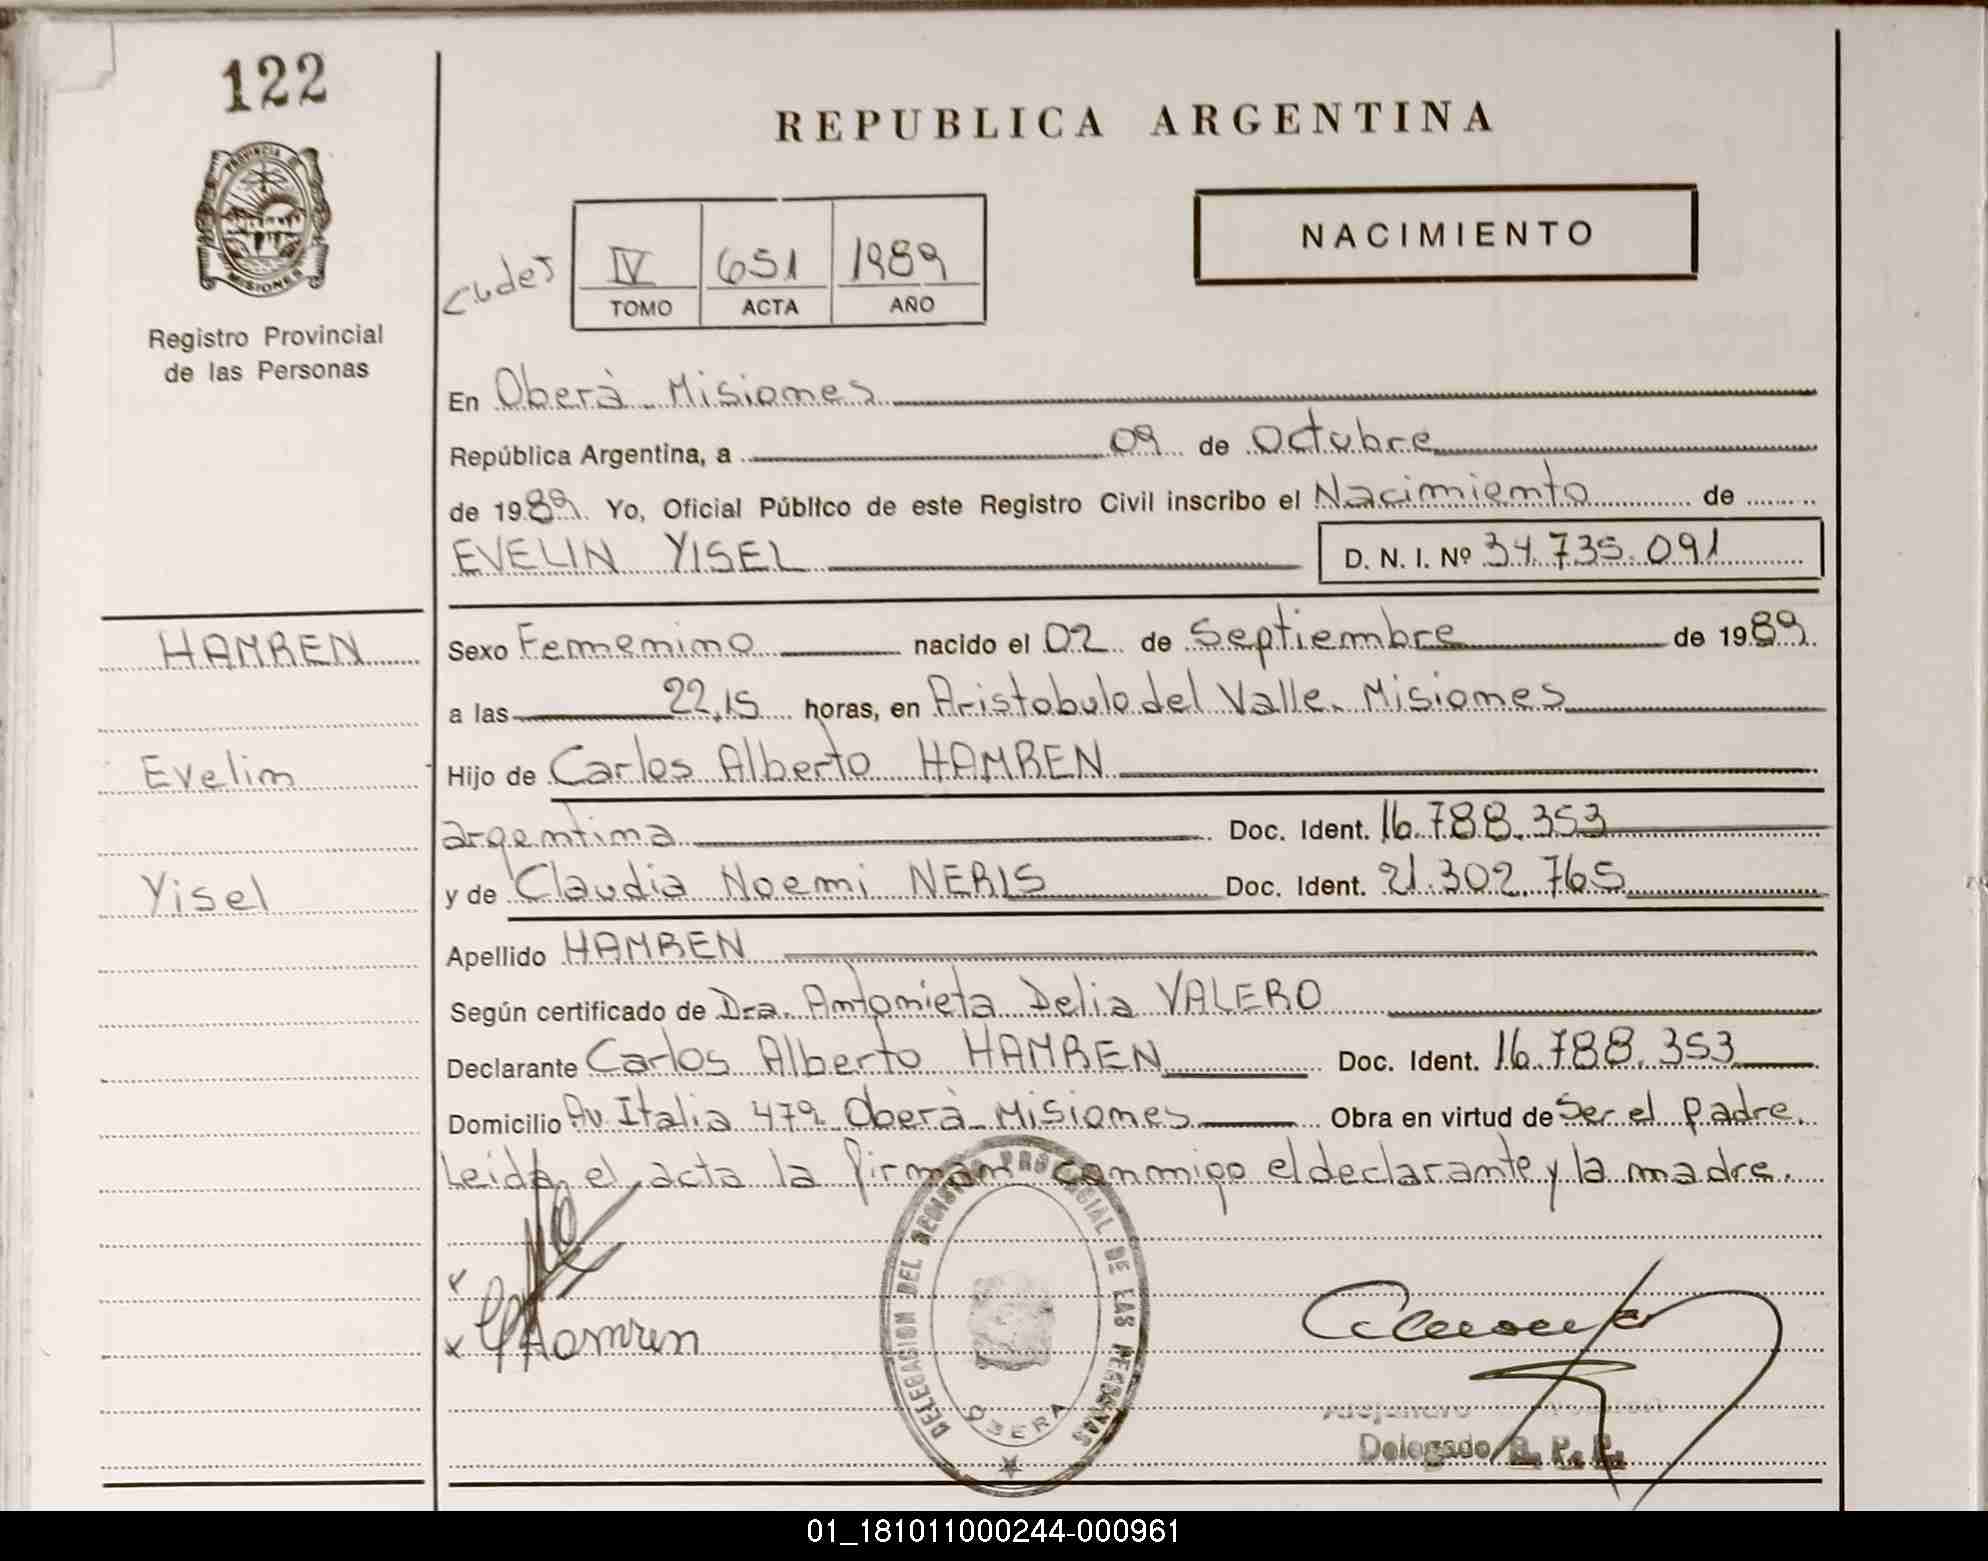 122
PROVINCIA DE
MISIONES
Registro Provincial
de las Personas
REPUBLICA ARGENTINA
IV 651 1989
TOMO ACTA AÑO
NACIMIENTO
En Oberà Misiones
República Argentina, a 09 de Octubre
de 1989 Yo, Oficial Público de este Registro Civil inscribo el Nacimiento de
EVELIN YISEL D. N. I. Nº 34.735.091
HAMREN
Evelin
Yisel
Sexo Femenino nacido el 02 de Septiembre de 1989.
a las 22,15 horas, en Aristobulo del Valle. Misiones
Hijo de Carlos Alberto HAMREN
argentina Doc. Ident. 16.788.353
y de Claudia Noemi NERIS Doc. Ident. 21.302.765
Apellido HAMREN
Según certificado de Dra. Antonieta Delia VALERO
Declarante Carlos Alberto HAMREN Doc. Ident. 16.788.353
Domicilio Av. Italia 479 Oberà Misiones Obra en virtud de Ser el padre.
Leida el acta la firman conmigo el declarante y la madre.
Hamren
DELEGACION DEL REGISTRO PROVINCIAL DE LAS PERSONAS
OBERA
Delegado R. P. P.
01_181011000244-000961